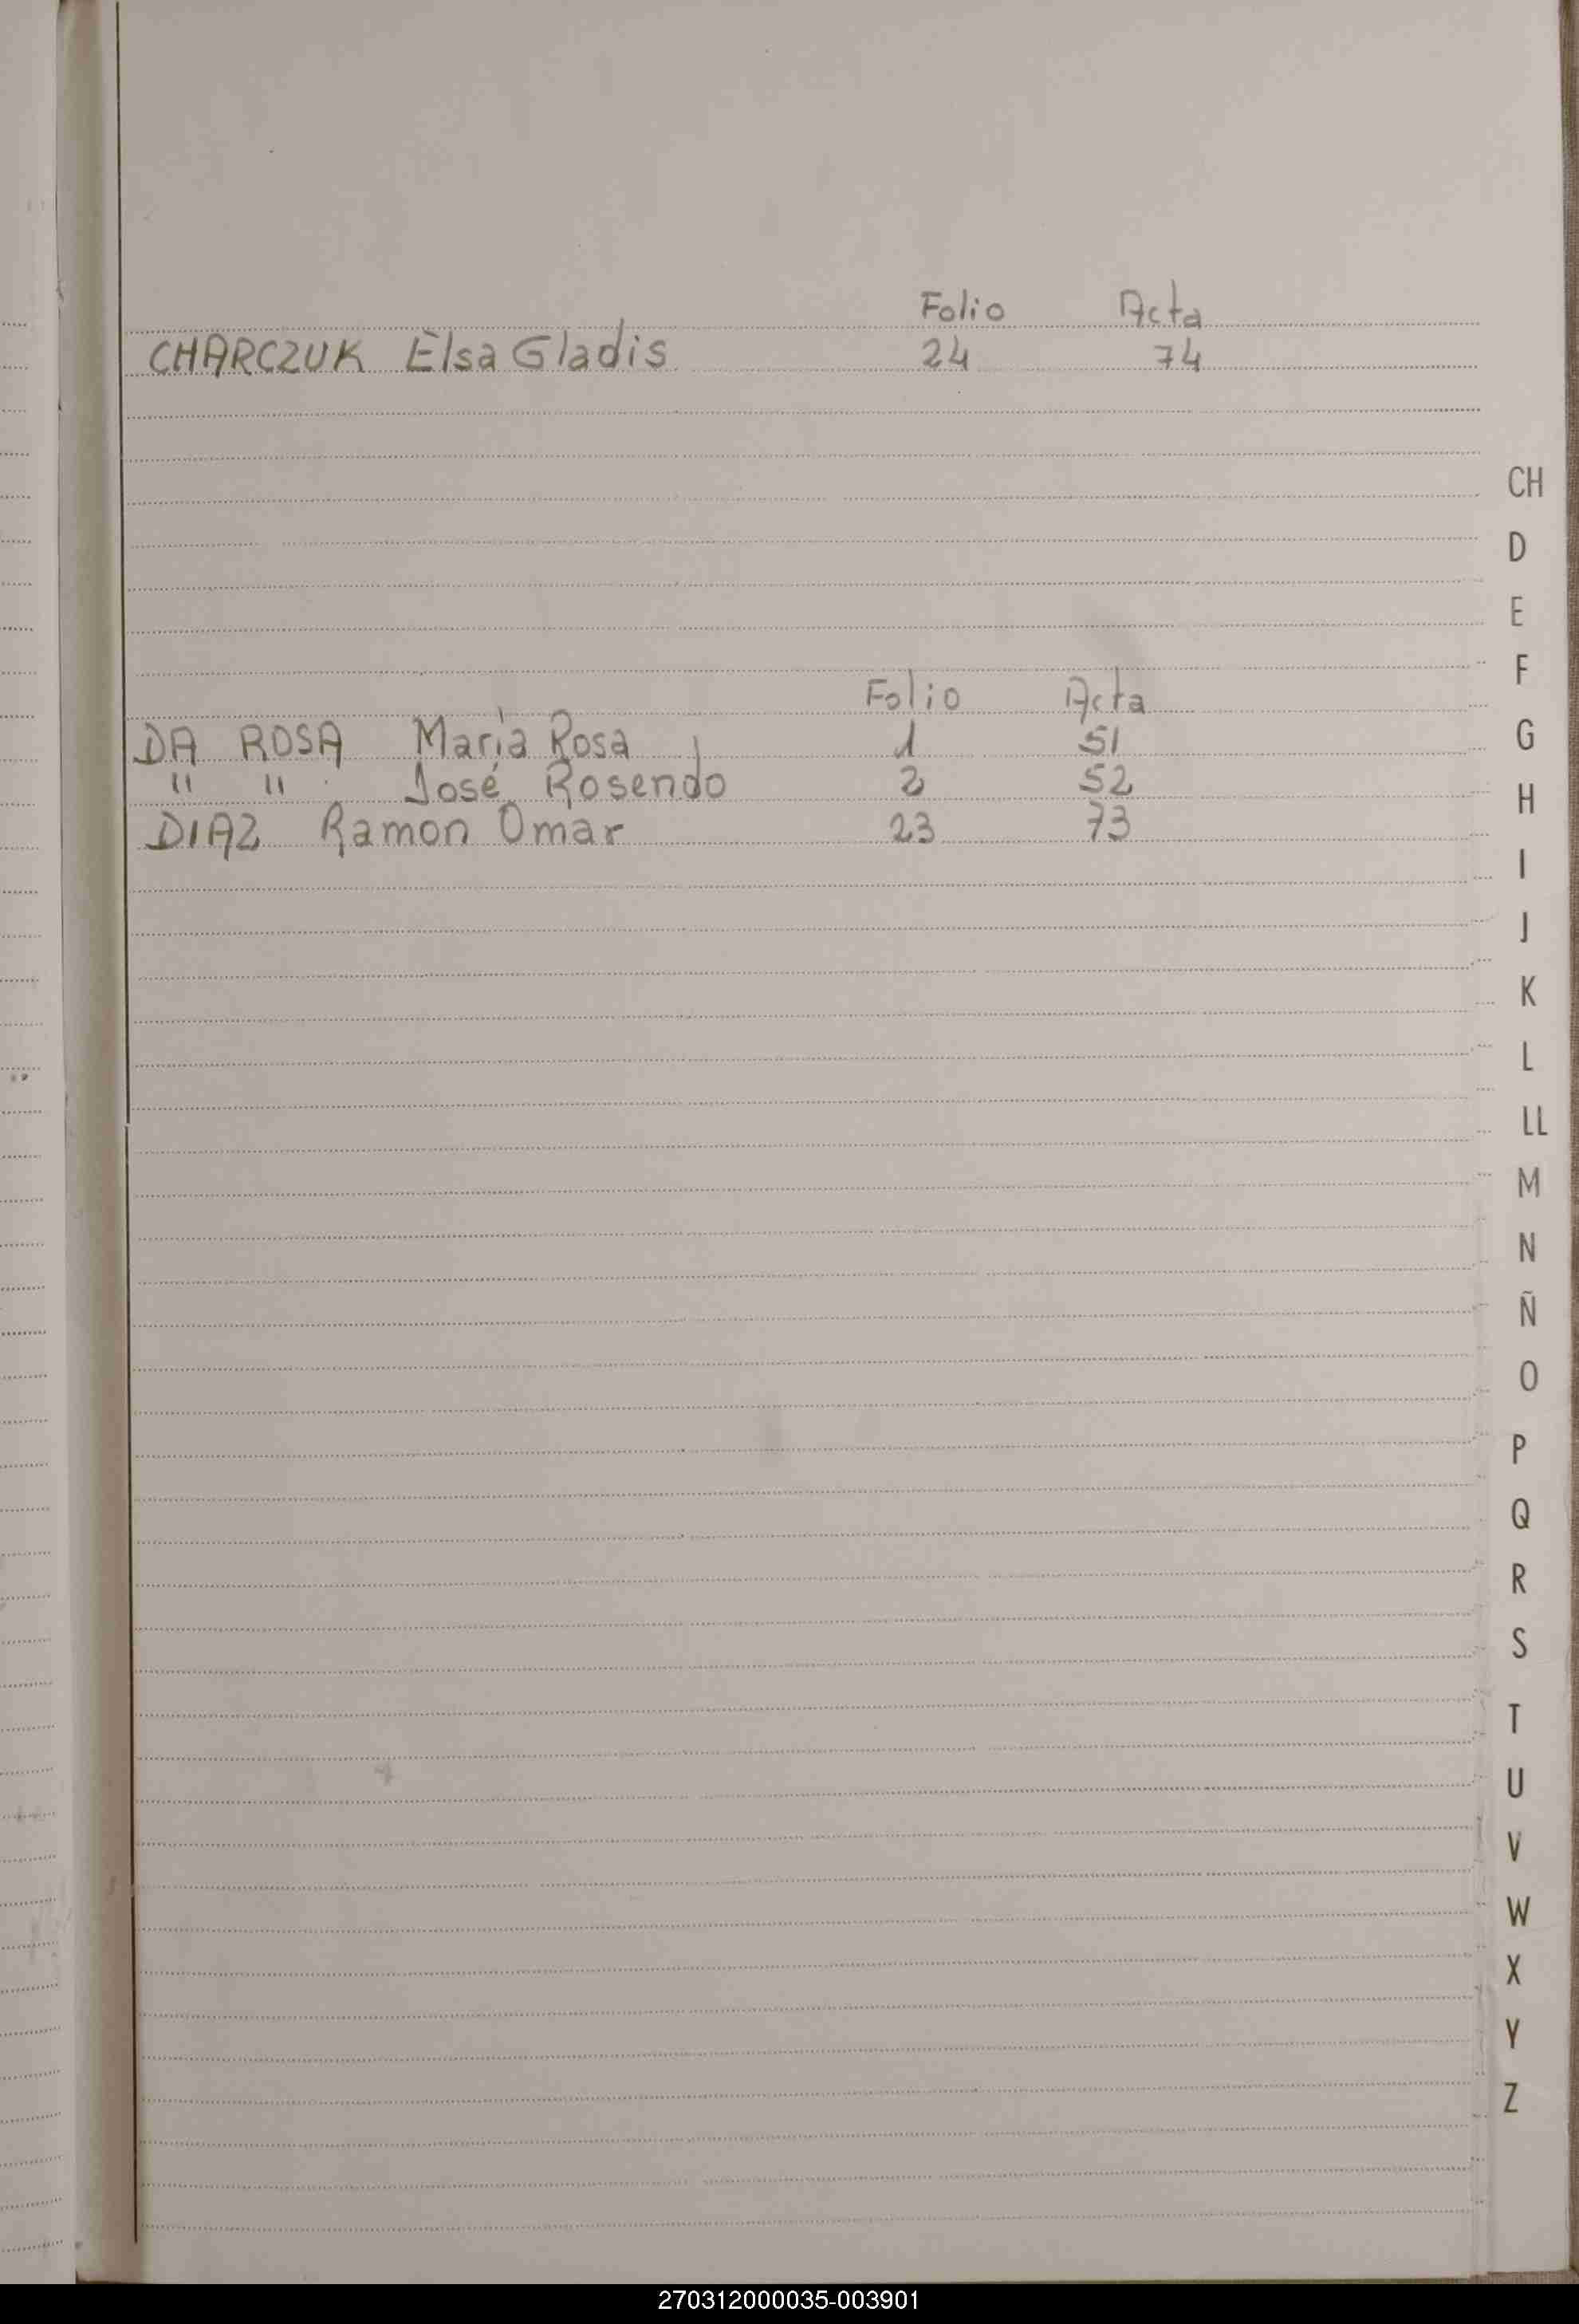 Folio Acta
CHARCZUK Elsa Gladis 24 74
Folio Acta
DA ROSA María Rosa 1 51
" " José Rosendo 2 52
DIAZ Ramon Omar 23 73
CH
D
E
F
G
H
I
J
K
L
LL
M
N
Ñ
O
P
Q
R
S
T
U
V
W
X
Y
Z
270312000035-003901